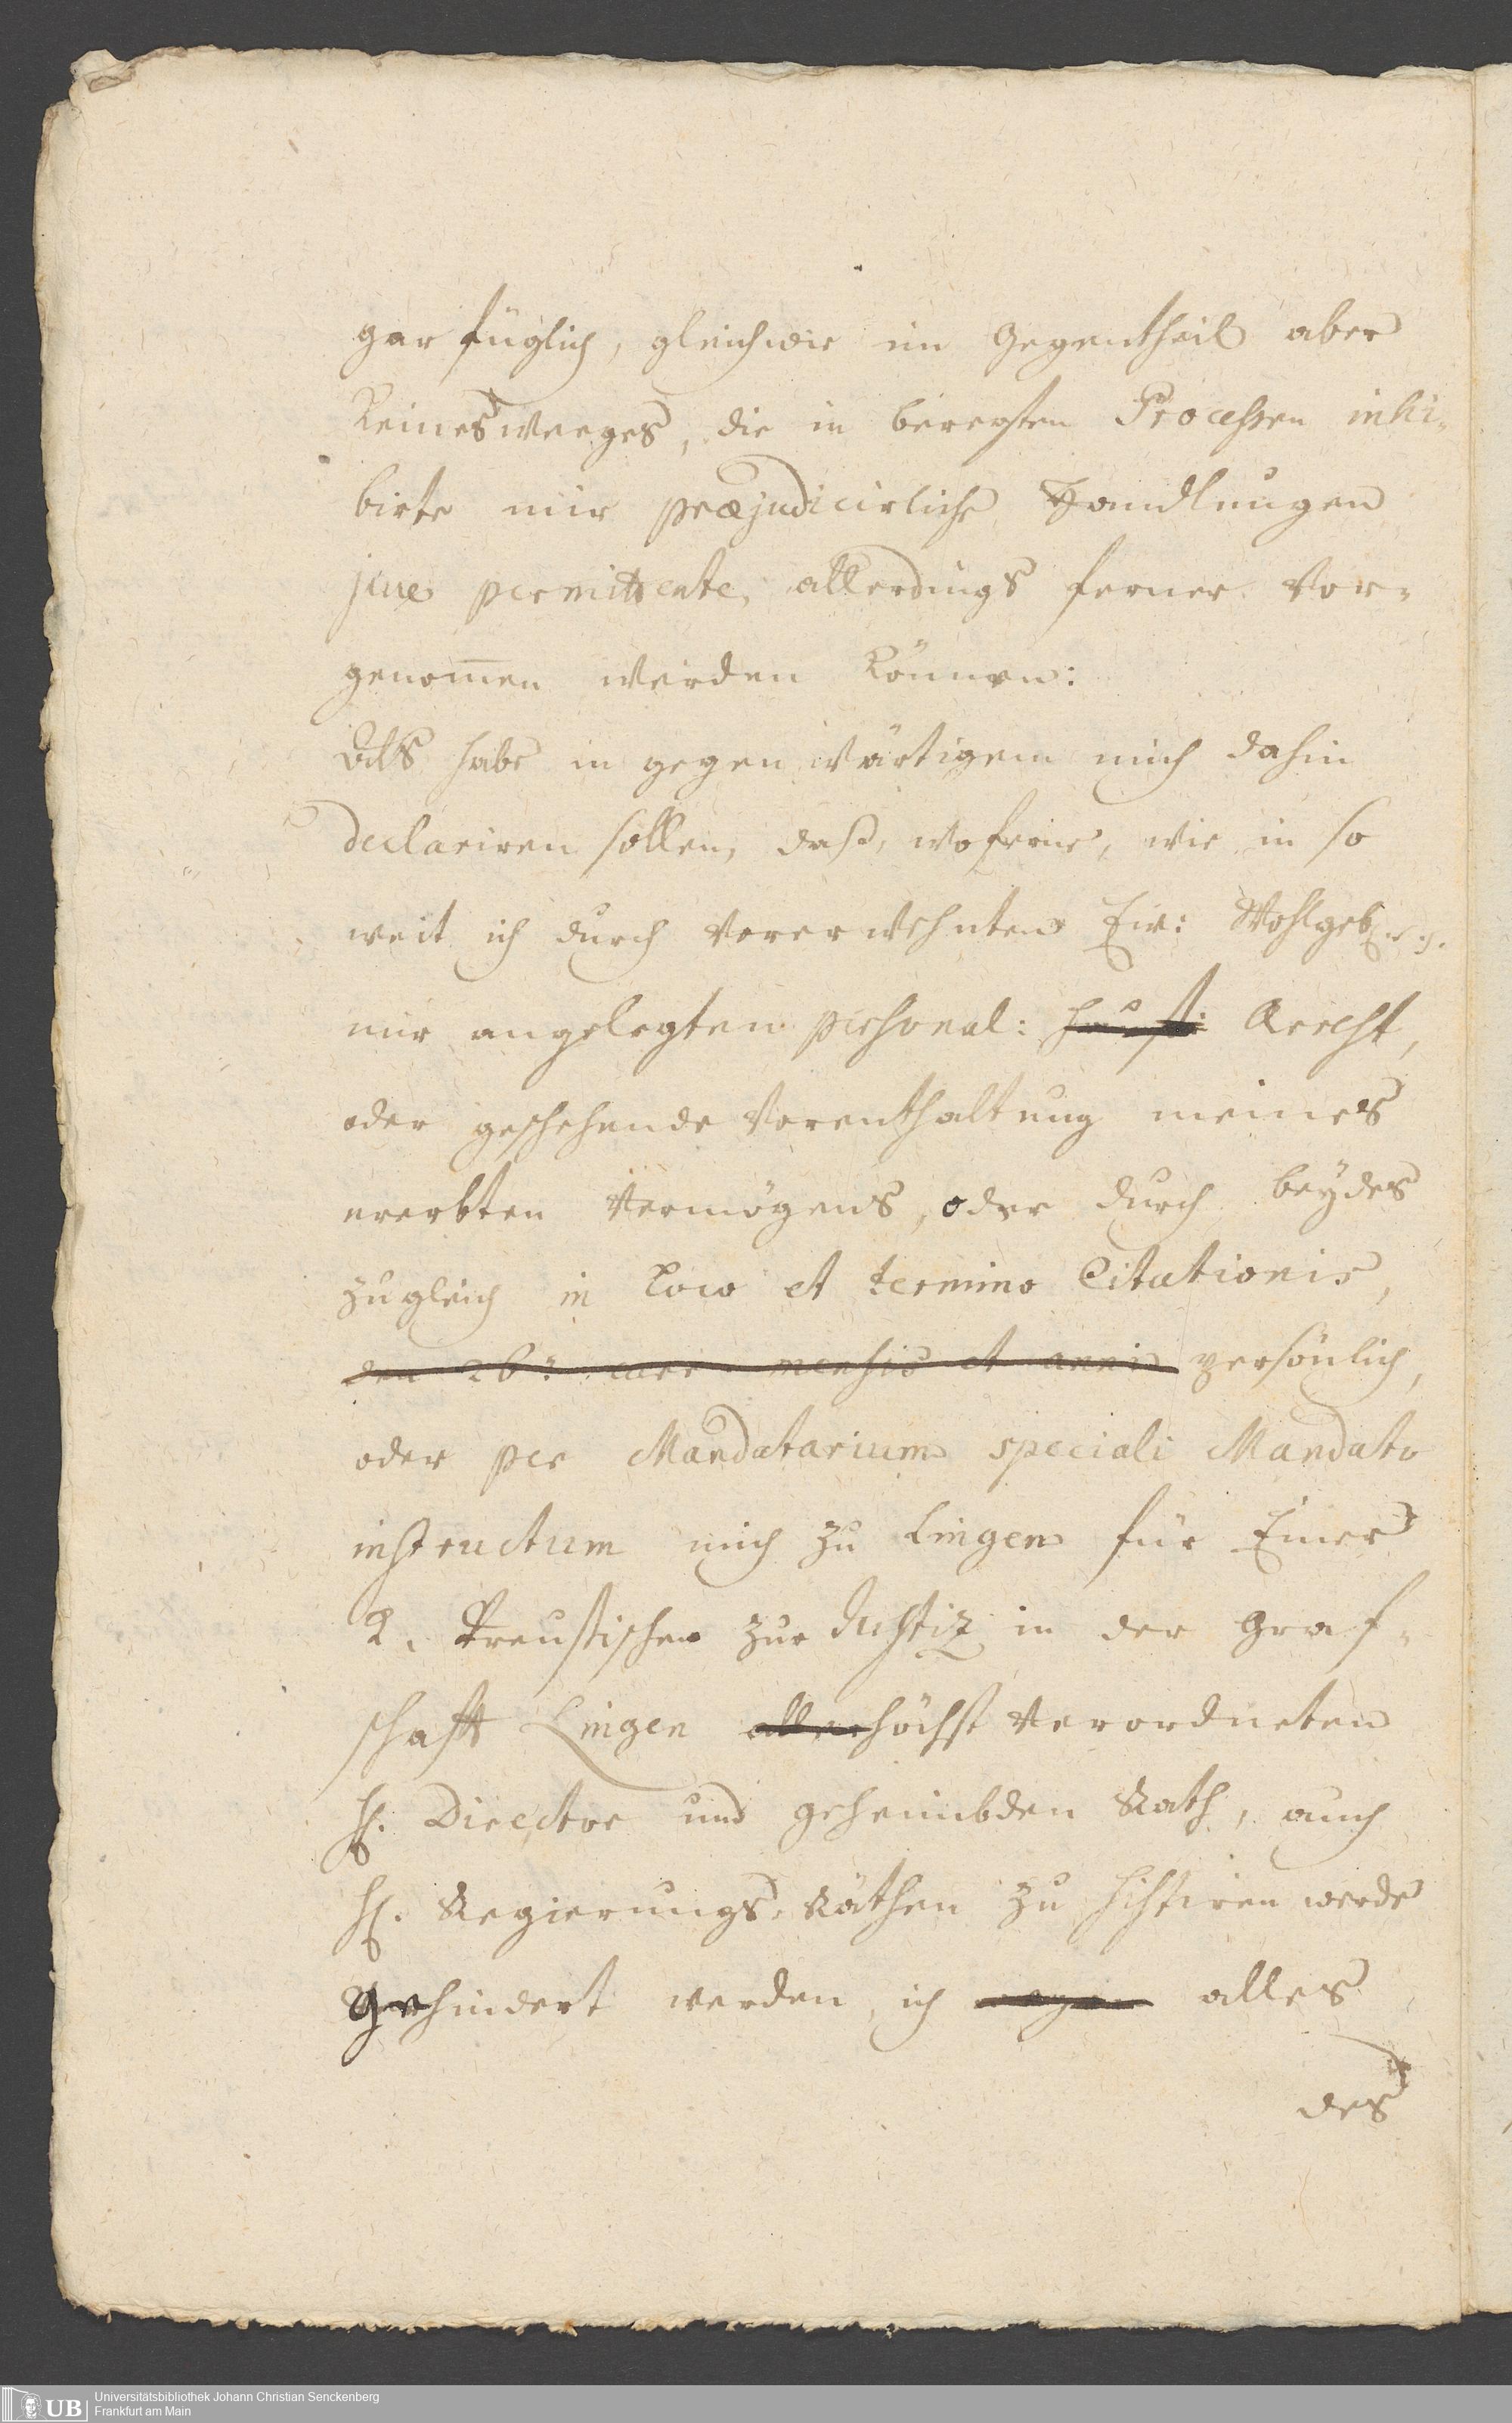 gar füglich, gleichwie im Gegentheil aber
keinesweeges, die in beregten Processen inhi-
birte mir præjudicirliche Handlungen
jure permittente, allerdings ferner vor-
genom̅en werden können:
Als habe in gegenwärtigem mich dahin
declariren sollen, daß, woferne, wie in so
weit ich durch vorerwehnten Ew: Wohlgeb.
mir angelegten personal: Arrest,
oder geschehende Vorenthaltung meines
ererbten Vermögens, oder durch beydes
zugleich in loco et termino Citationis,
den 26: curr mensis et anni persönlich,
oder per Mandatarium speciali Mandato
instructum mich zu Lingen für Einer
K. Preusischen zur Justiz in der Graf-
schafft Lingen allerhöchst verordneten
H. Director und geheimbden Rath, auch
H. Regierungs-Räthen zu sistiren werde
gehindert werden, ich wegen alles
des
Universitätsbibliothek Johann Christian Senckenberg
Frankfurt am Main
UB